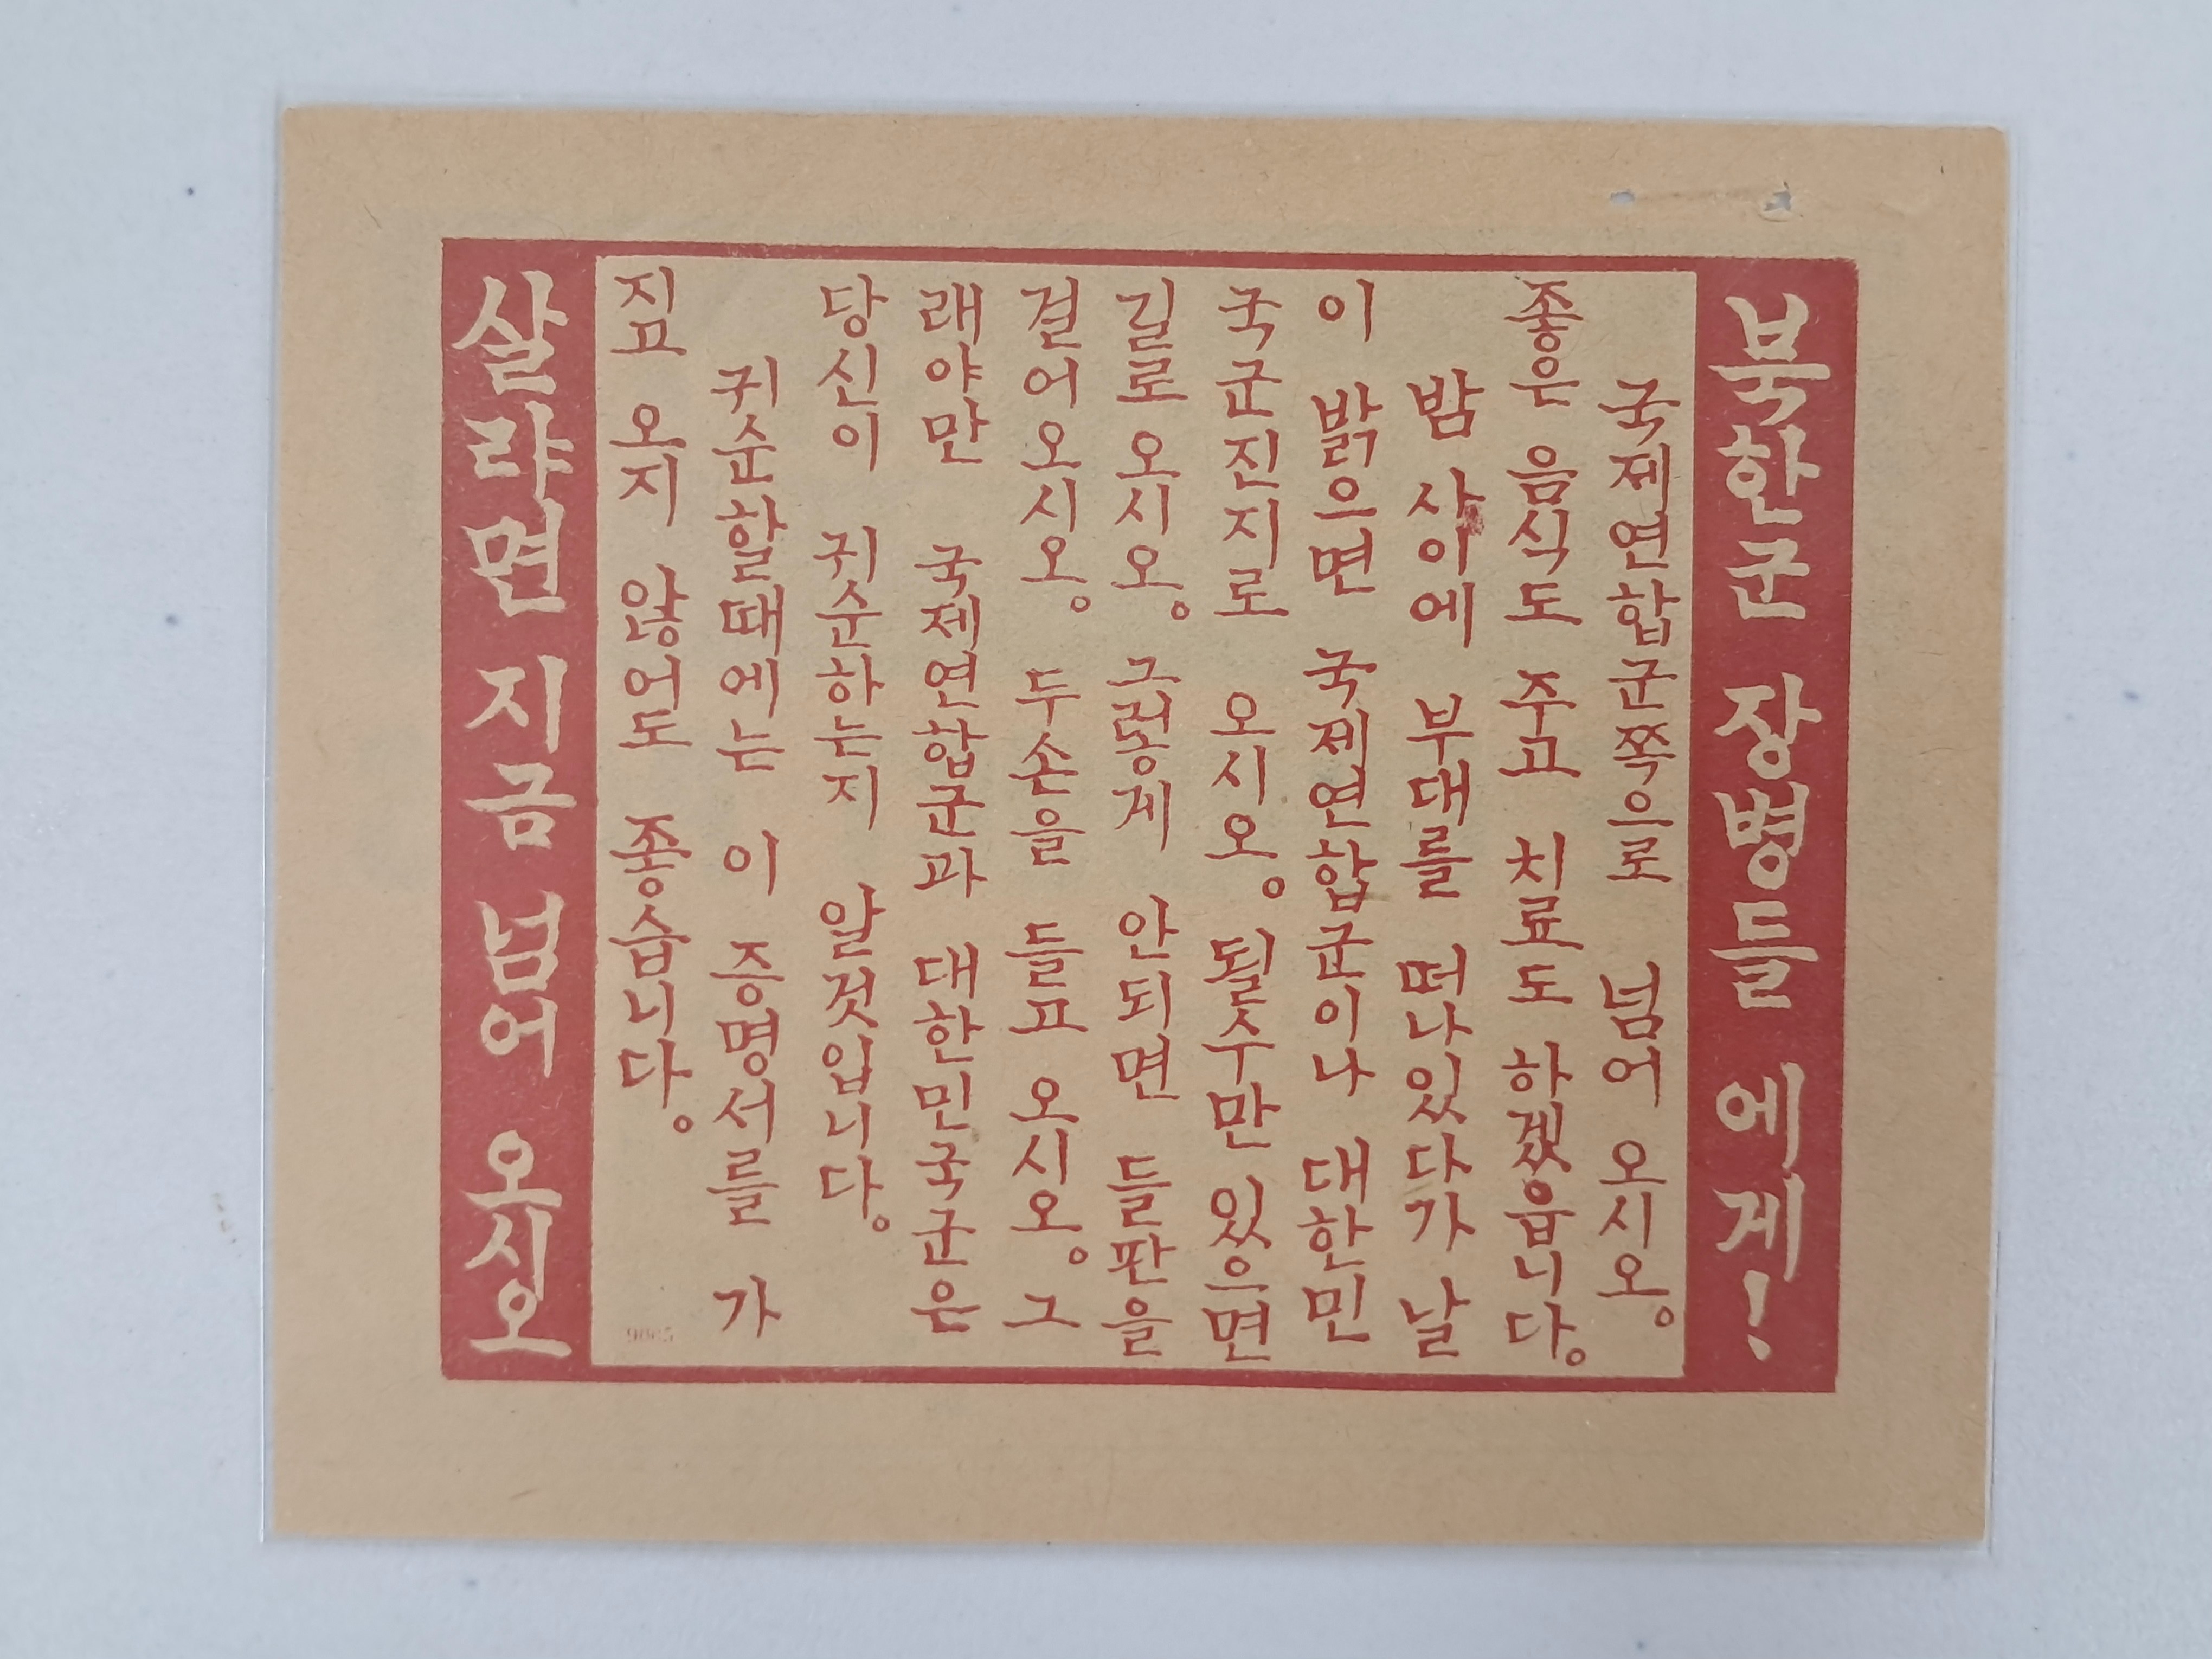 북한군 장병들 에게!
국제연합군쪽으로 넘어 오시오。
좋은 음식도 주고 치료도 하겠읍니다。
밤 사이에 부대를 떠나있다가 날
이 밝으면 국제연합군이나 대한민
국군진지로 오시오。 될수만 있으면
길로 오시오。 그렇게 안되면 들판을
걸어오시오。 두손을 들고 오시오。 그
래야만 국제연합군과 대한민국군은
당신이 귀순하는지 알것입니다。
귀순할때에는 이 증명서를 가
지고 오지 않어도 좋습니다。
살랴면 지금 넘어 오시오